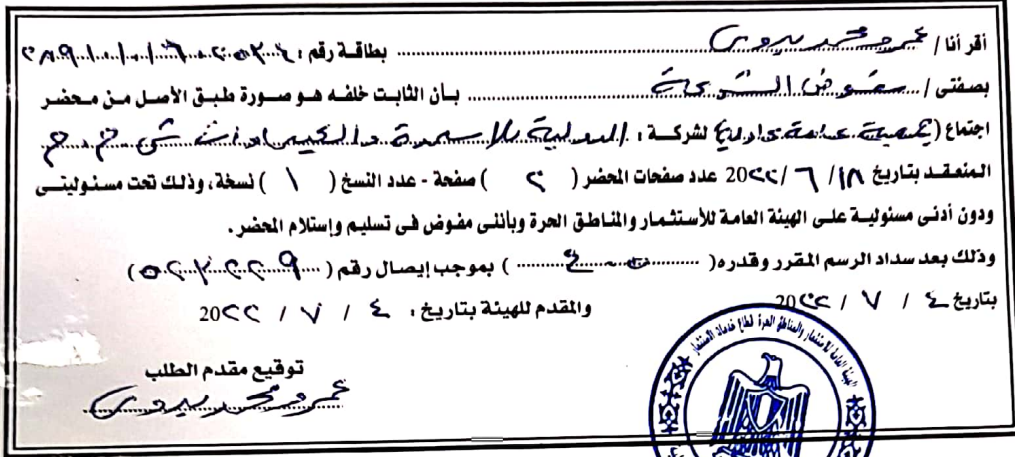 أقر أنا / عمرو محمد بيومى بطاقة رقم :
بصفتى / مفوض الشركة بأن الثابت خلفه هو صورة طبق الأصل من محضر
اجتماع ( جمعية عامة عادية ) لشركة : الدولية للأسمدة والكيماويات ش.م.م
المنعقد بتاريخ ١٨ / ٦ / 20٢٢ عدد صفحات المحضر ( ٢ ) صفحة - عدد النسخ ( ١ ) نسخة ، وذلك تحت مسئوليتى
ودون أدنى مسئولية على الهيئة العامة للأستثمار والمناطق الحرة وبأننى مفوض فى تسليم وإستلام المحضر .
وذلك بعد سداد الرسم المقرر وقدره ( ) بموجب إيصال رقم ( ٥٢٣٢٢٩ )
بتاريخ ٤ / ٧ / 20٢٢ والمقدم للهيئة بتاريخ : ٤ / ٧ / 20٢٢
توقيع مقدم الطلب
عمرو محمد بيومى
الهيئة العامة للاستثمار والمناطق الحرة قطاع خدمات الاستثمار